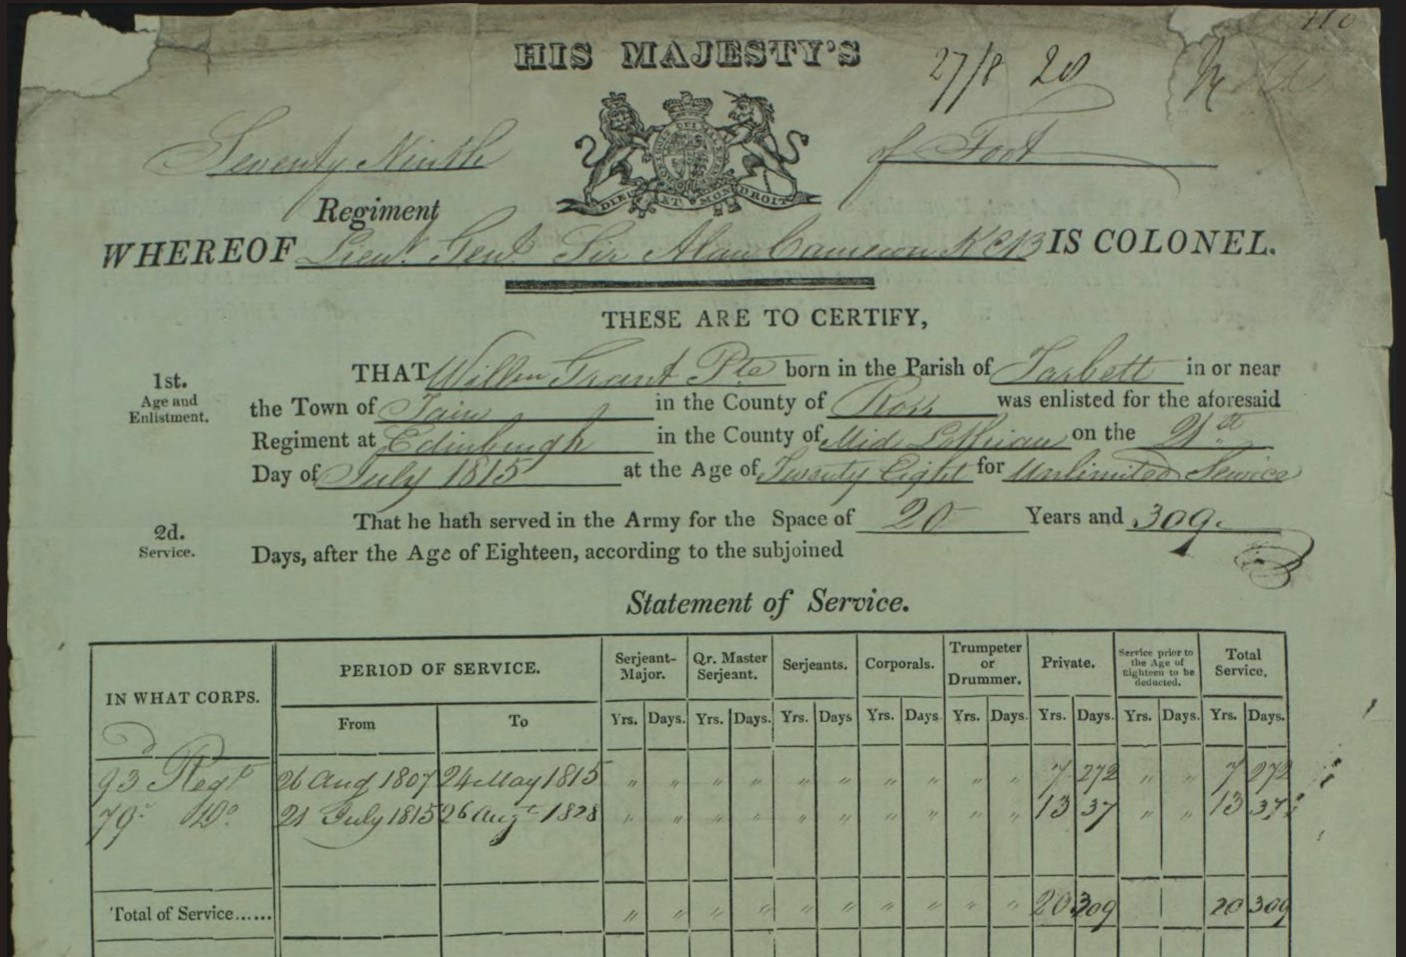 HIS MAJESTY'S
27/8 28
Seventy Ninth
of Foot
DIEU ET MON DROIT
Regiment
WHEREOF Lieut. Genl. Sir Alan Cameron KCB IS COLONEL.
THESE ARE TO CERTIFY,
1st. Age and Enlistment.
THAT Willm Grant Pte born in the Parish of Tarbett in or near
the Town of Tain in the County of Ross was enlisted for the aforesaid
Regiment at Edinburgh in the County of Mid Lothian on the 21st
Day of July 1815 at the Age of Twenty Eight for Unlimited Service
2d. Service.
That he hath served in the Army for the Space of 20 Years and 309.
Days, after the Age of Eighteen, according to the subjoined
Statement of Service.
IN WHAT CORPS. PERIOD OF SERVICE. Serjeant-Major. Qr. Master Serjeant. Serjeants. Corporals. Trumpeter or Drummer. Private. Service prior to the Age of Eighteen to be deducted. Total Service.
From To Yrs. Days. Yrs. Days. Yrs. Days Yrs. Days Yrs. Days. Yrs. Days. Yrs. Days. Yrs. Days.
93d Regt 26 Aug 1807 24 May 1815 " " " " " " " " " " 7 272 " " 7 272
79. Do. 21 July 1815 26 Augt 1828 " " " " " " " " " " 13 37 " " 13 37
Total of Service...... " " " " " " " " " " 20 309 20 309